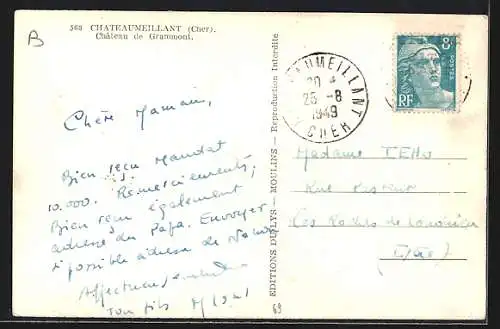 B
568 CHATEAUMEILLANT (Cher).
Château de Grammont.
Chère Maman,
Bien reçu Mandat
10.000. Remerciements,
Bien reçu également
adresse du Papa. Envoyer
si possible adresse de
Affectueusement
Ton fils
EDITIONS DU LYS - MOULINS - Reproduction Interdite
69
CHATEAUMEILLANT
20 4
25 -8
1949
CHER
8F
RF
Madame
Rue Pasteur
Les Roches de
(Isère)